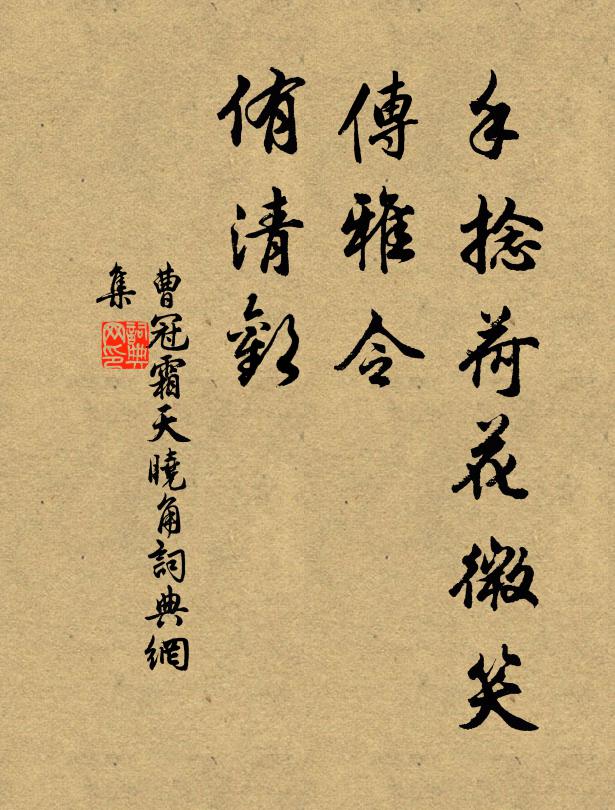 手捻荷花微笑
傳雅令
侑清歡
曹冠霜天曉角詞典網
集
詞典网印